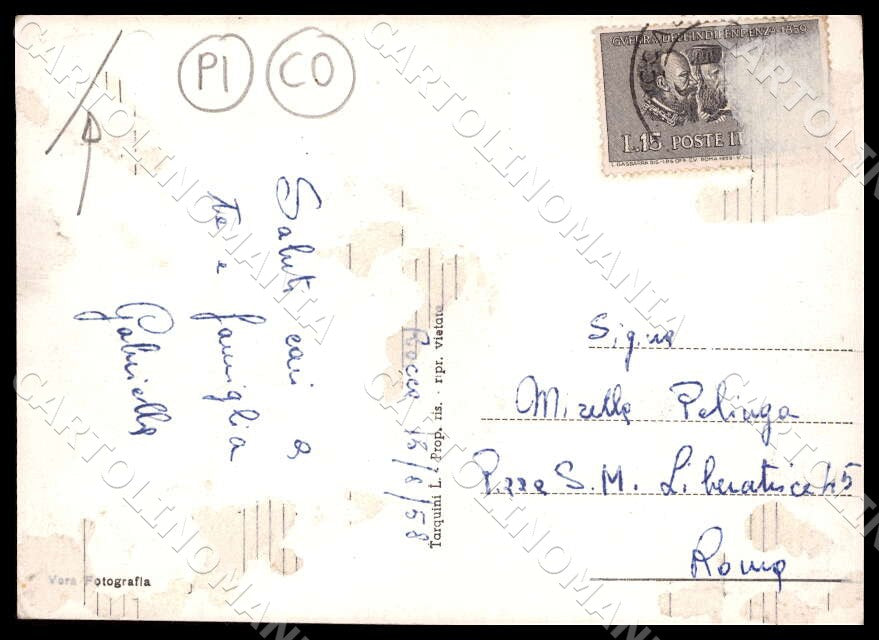 PI CO
GUERRA DELL'INDIPENDENZA 1859
L.15 POSTE IT
Saluti cari a
te e famiglia
Gabriella
Rocca 16/8/58
Tarquini L. - Prop. ris. - ripr. vietata
Sig.na
Mirella Pelinga
P.zza S.M. Liberatrice 45
Roma
Vera Fotografia
CARTOLINOMANIA